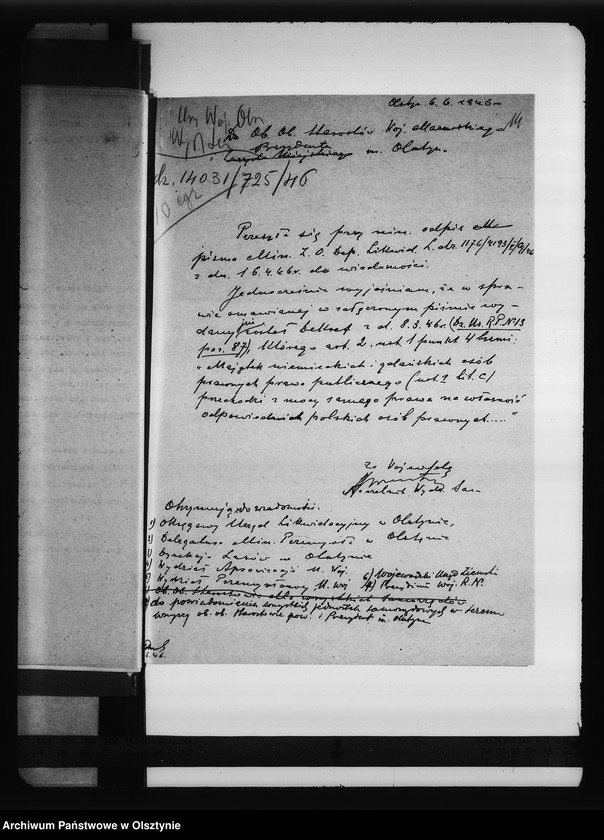 Olsztyn 6.6.1946 r.
14
Urz. Woj. Olsz.
Do Ob. Ob. Starostów Woj. Mazurskiego
Prezydenta
i Zarządu Miejskiego m. Olsztyna
dz. 14031/725/46
10 egz
Przesyła się przy nin. odpis
pisma Min. Z. O. Dep. Likwid. L. dz. 1176/4193/
z dn. 16.4.46 r. do wiadomości.
Jednocześnie wyjaśniam, że w spra-
wie omawianej w załączonym piśmie wy-
dany już został Dekret z d. 8.3.46 r. (Dz. Us. R.P. № 13
poz. 87), którego art. 2. ust 1 punkt 4 brzmi:
"Majątek niemieckich i gdańskich osób
prawnych prawa publicznego (ust. 1 lit. c)
przechodzi z mocy samego prawa na własność
odpowiednich polskich osób prawnych....."
za Wojewodę
Naczelnik Wydz. Sam.
Otrzymują do wiadomości.
1) Okręgowy Urząd Likwidacyjny w Olsztynie,
2) Delegatura Min. Przemysłu w Olsztynie
3) Dyrekcja Lasów w Olsztynie
4) Wydział Aprowizacji U. Woj.
5) Wydział Przemysłowy U. Woj.
6) Wojewódzki Urząd Ziemski
7) Prezydium Woj. R.N.
Ob. Ob. Starostowie dla wszystkich Samorządów
do powiadomienia wszystkich jednostek samorządowych w terenie
wszyscy ob. ob. Starostowie pow. i Prezydent m. Olsztyna
Archiwum Państwowe w Olsztynie